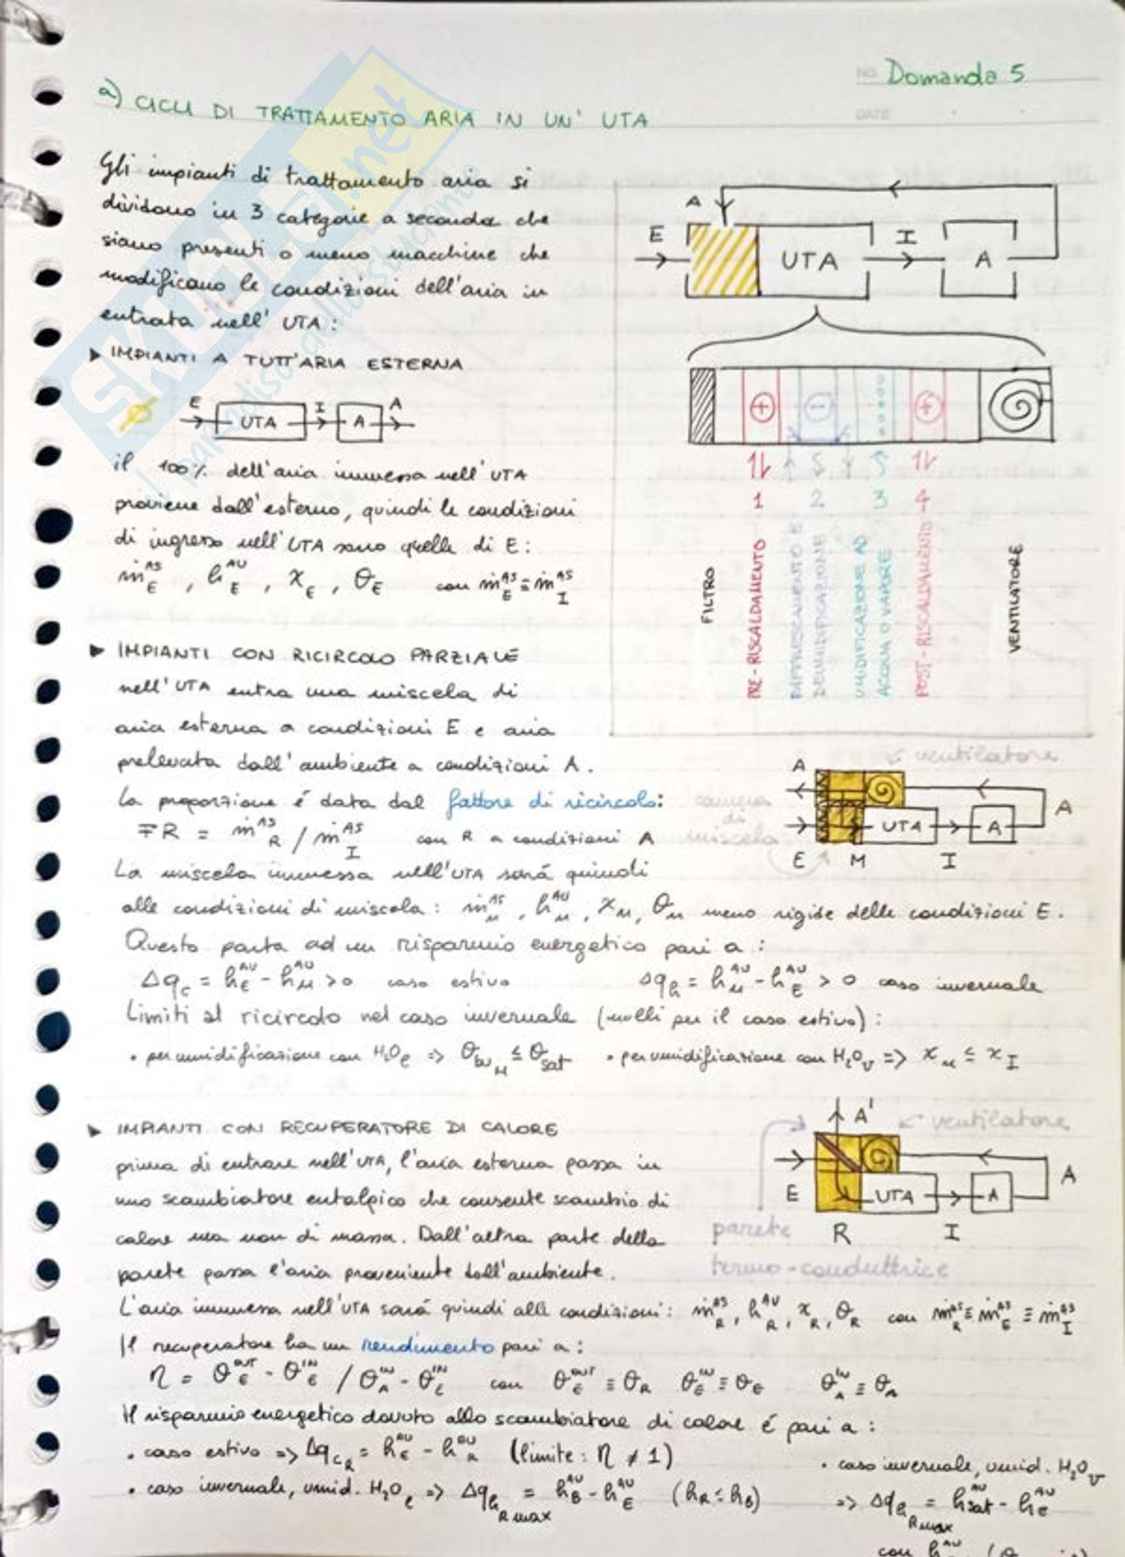 Domanda 5
NO.
DATE
a) CICLI DI TRATTAMENTO ARIA IN UN' UTA
Gli impianti di trattamento aria si
dividono in 3 categorie a seconda che
siano presenti o meno macchine che
modificano le condizioni dell'aria in
entrata nell' UTA:
A
E UTA I A
▶ IMPIANTI A TUTT'ARIA ESTERNA
E UTA I A A
il 100% dell'aria immessa nell'UTA
proviene dall'esterno, quindi le condizioni
di ingresso nell'UTA sono quelle di E:
ṁ_E^AS , h_E^AU , x_E , θ_E con ṁ_E^AS ≡ ṁ_I^AS
1 2 3 4
FILTRO
PRE-RISCALDAMENTO
RAFFREDDAMENTO E
DEUMIDIFICAZIONE
UMIDIFICAZIONE AD
ACQUA O VAPORE
POST-RISCALDAMENTO
VENTILATORE
▶ IMPIANTI CON RICIRCOLO PARZIALE
nell'UTA entra una miscela di
aria esterna a condizioni E e aria
prelevata dall'ambiente a condizioni A.
La proporzione é data dal fattore di ricircolo:
FR = ṁ_R^AS / ṁ_I^AS con R a condizioni A
ventilatore
camera
di
miscela
A
UTA A A
E M I
La miscela immessa nell'UTA sará quindi
alle condizioni di miscela: ṁ_M^AS , h_M^AU , x_M, θ_M meno rigide delle condizioni E.
Questo porta ad un risparmio energetico pari a:
Δq_c = h_E^AU - h_M^AU > 0 caso estivo Δq_h = h_M^AU - h_E^AU > 0 caso invernale
Limiti al ricircolo nel caso invernale (nulli per il caso estivo):
• per umidificazione con H₂O_l => θ_bu_M ≤ θ_sat • per umidificazione con H₂O_v => x_M ≤ x_I
▶ IMPIANTI CON RECUPERATORE DI CALORE
prima di entrare nell'UTA, l'aria esterna passa in
uno scambiatore entalpico che consente scambio di
calore ma non di massa. Dall'altra parte della
parete passa l'aria proveniente dall'ambiente.
A'
ventilatore
E UTA A A
R I
parete
termo-conduttrice
L'aria immessa nell'UTA sará quindi alle condizioni: ṁ_R^AS, h_R^AU, x_R, θ_R con ṁ_R^AS ≡ ṁ_E^AS ≡ ṁ_I^AS
Il recuperatore ha un rendimento pari a:
η = θ_E^OUT - θ_E^IN / θ_A^IN - θ_E^IN con θ_E^OUT ≡ θ_R θ_E^IN ≡ θ_E θ_A^IN ≡ θ_A
Il risparmio energetico dovuto allo scambiatore di calore é pari a:
• caso estivo => Δq_c_R = h_E^AU - h_R^AU (limite: η ≠ 1)
• caso invernale, umid. H₂O_l => Δq_h_R max = h_B^AU - h_E^AU (h_R ≤ h_B)
• caso invernale, umid. H₂O_v
=> Δq_h_R max = h_sat^AU - h_E^AU